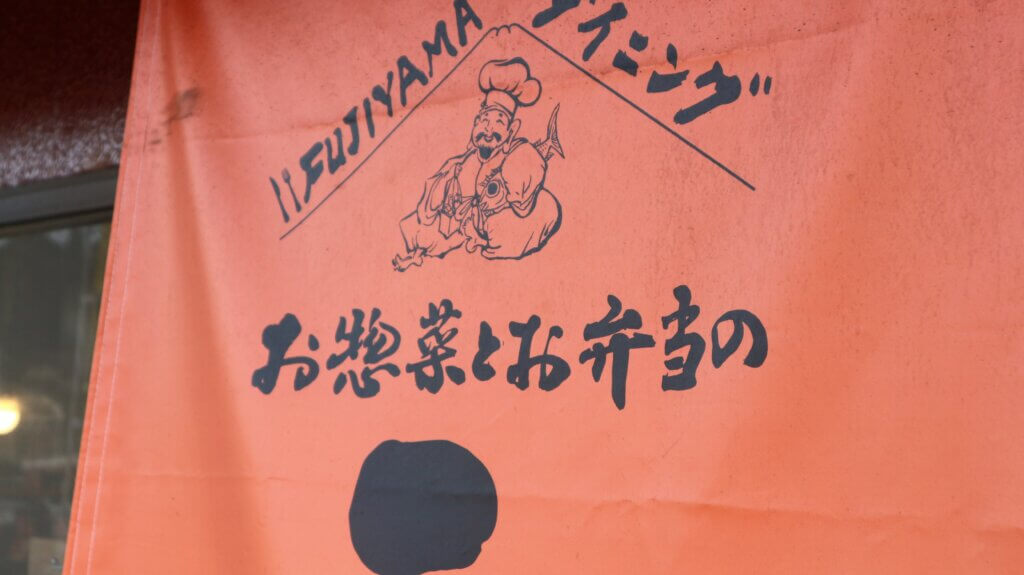 FUJIYAMA ダイニング
お惣菜とお弁当の